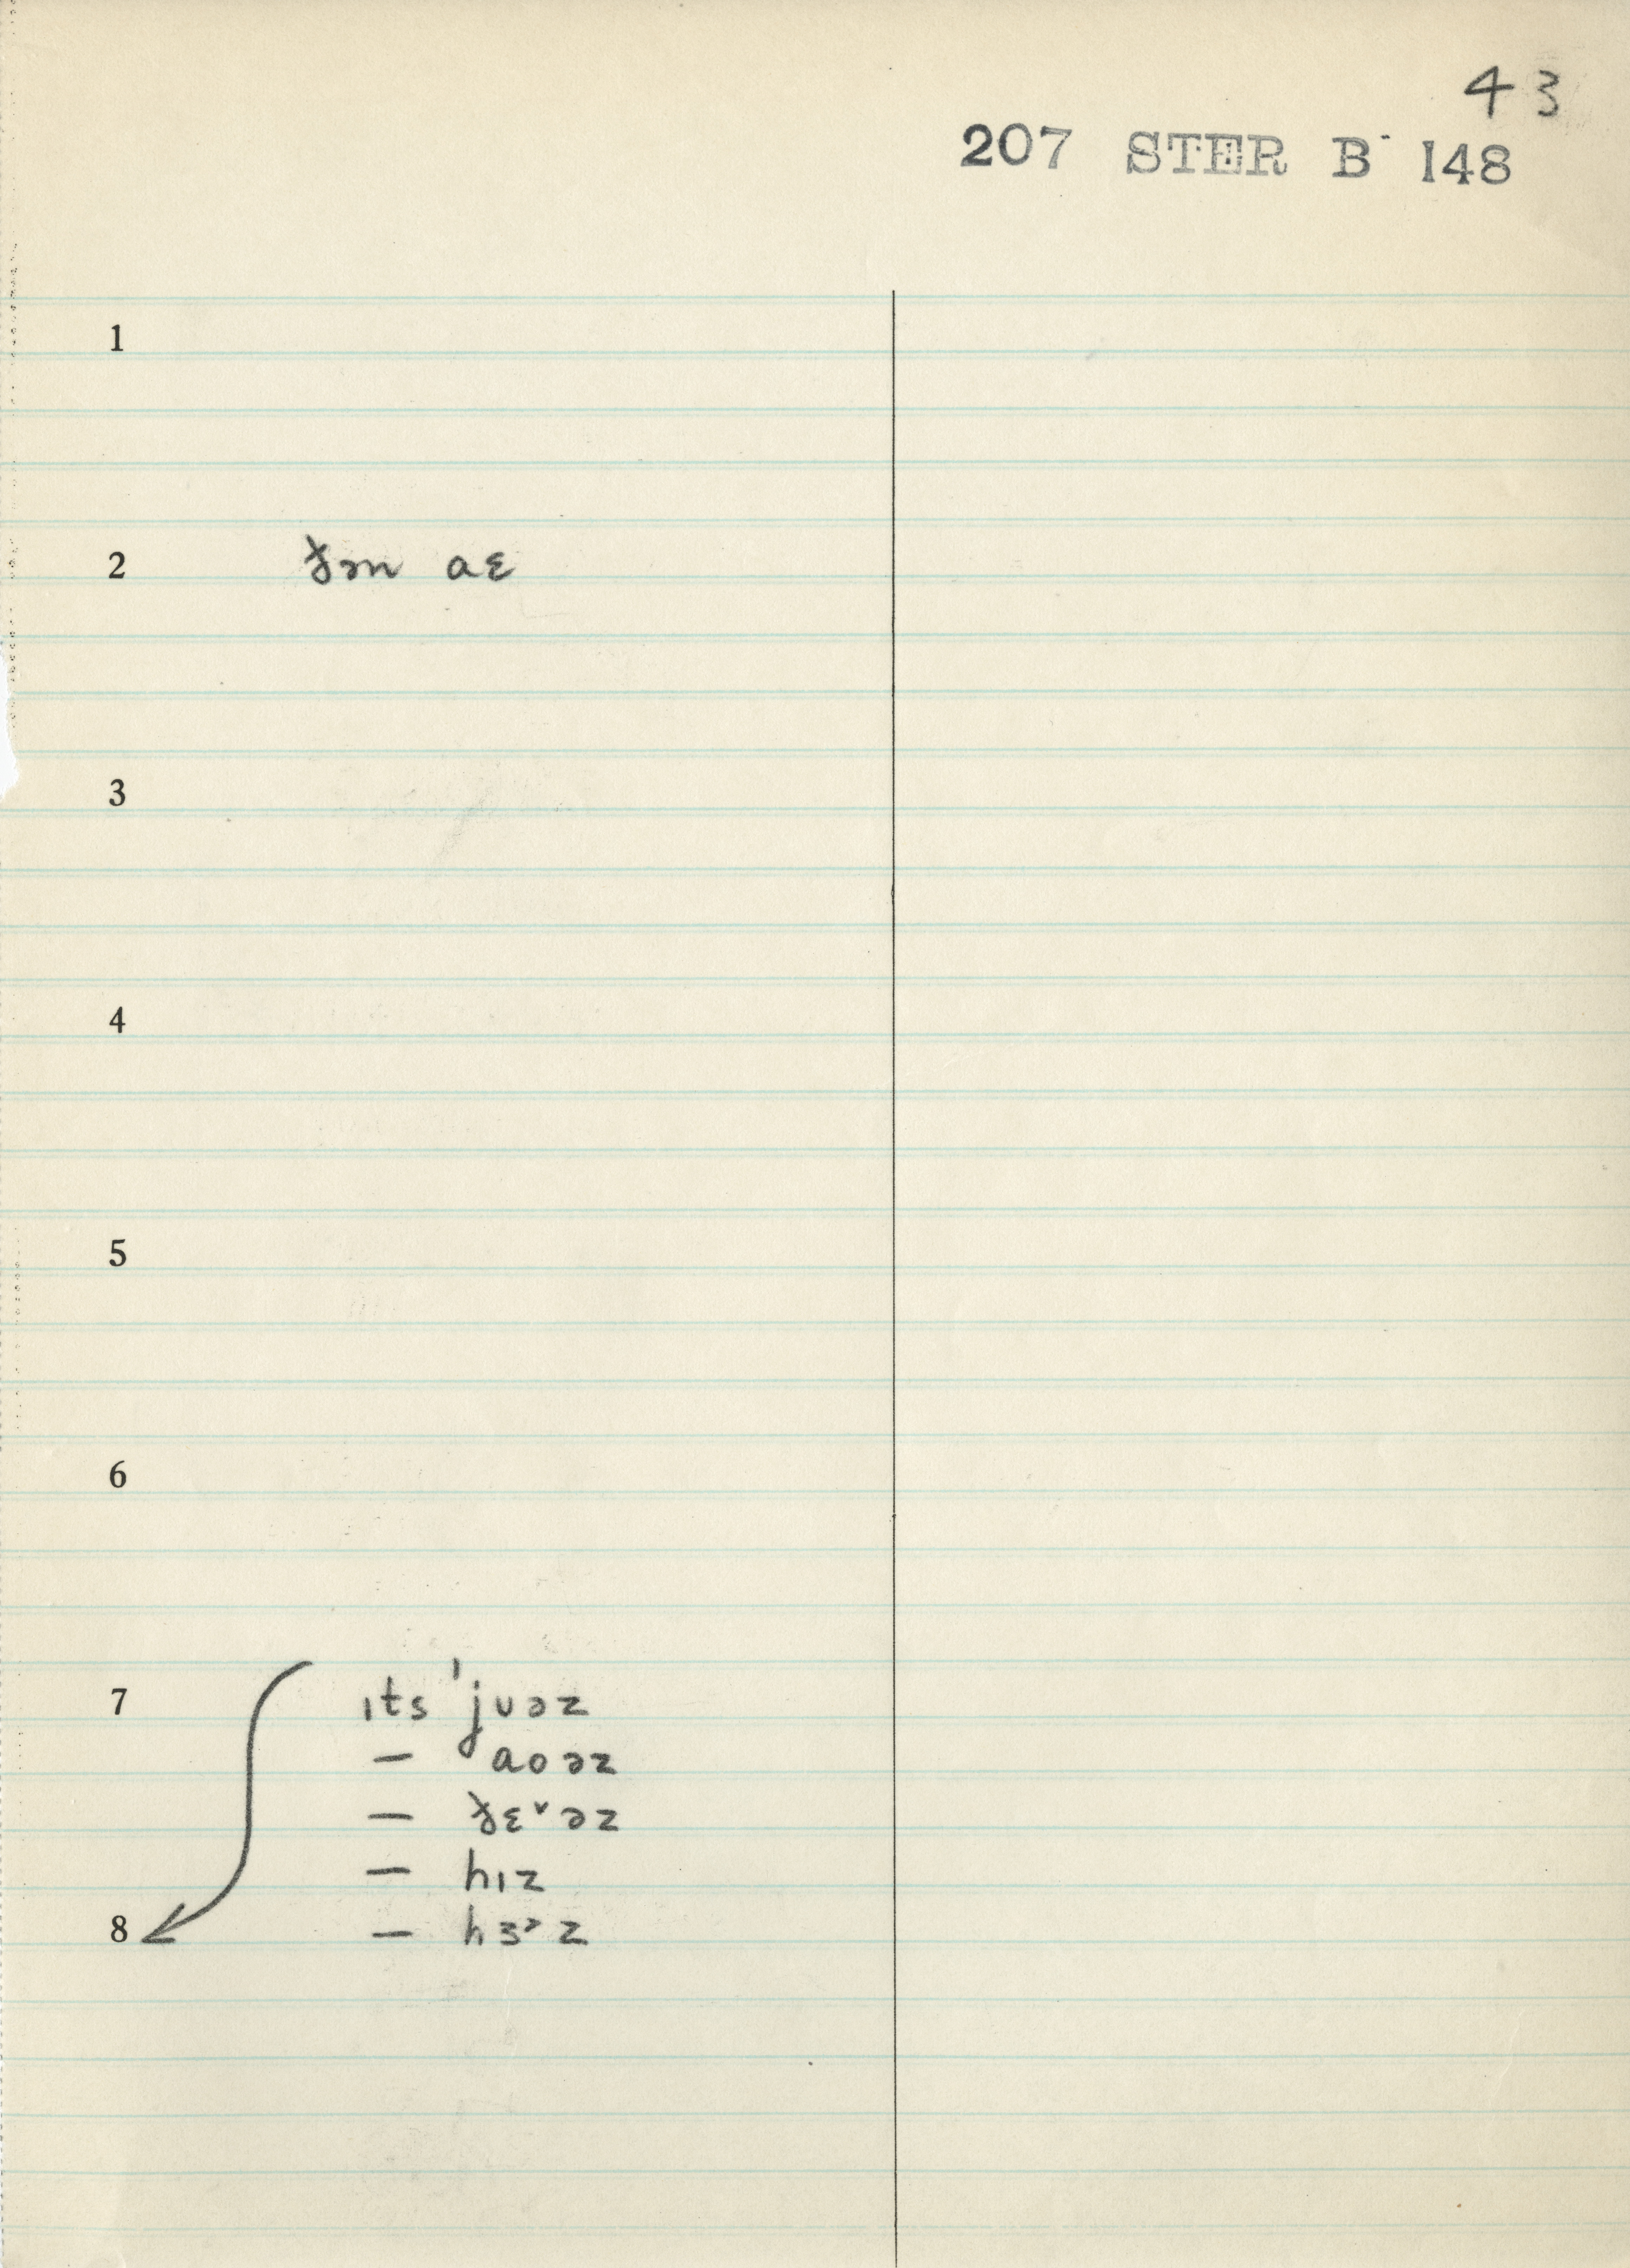 43
207 STER B- 148
1
2 ðəm aɛ
3
4
5
6
7 ɪts 'jʊəz
— aoəz
— ðɛ˅əz
— hɪz
8 — hɜ˞z